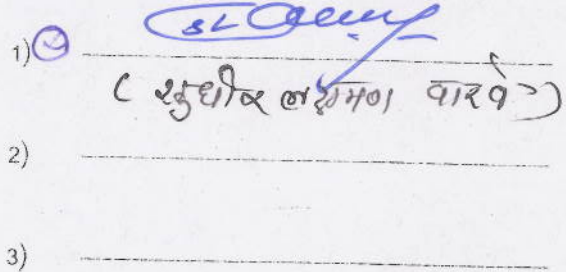 1)
( सुधीर लक्ष्मण वारवे )
2)
3)